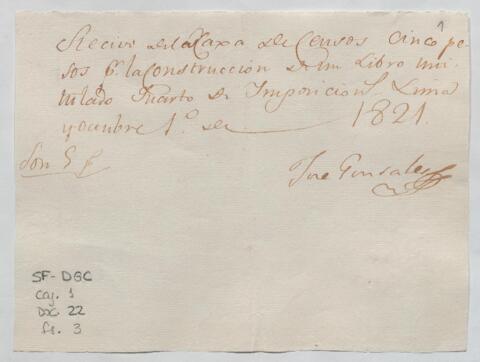 1
Recivi de la Caxa de Censos Cinco pe-
sos pa. la Construcción de un Libro inti-
tulado Quarto de Imposicions. Lima
y octubre 1o. de 1821.
Son 5 ps
José Gonsales
SF-DGC
Caj. 1
Doc 22
fs. 3